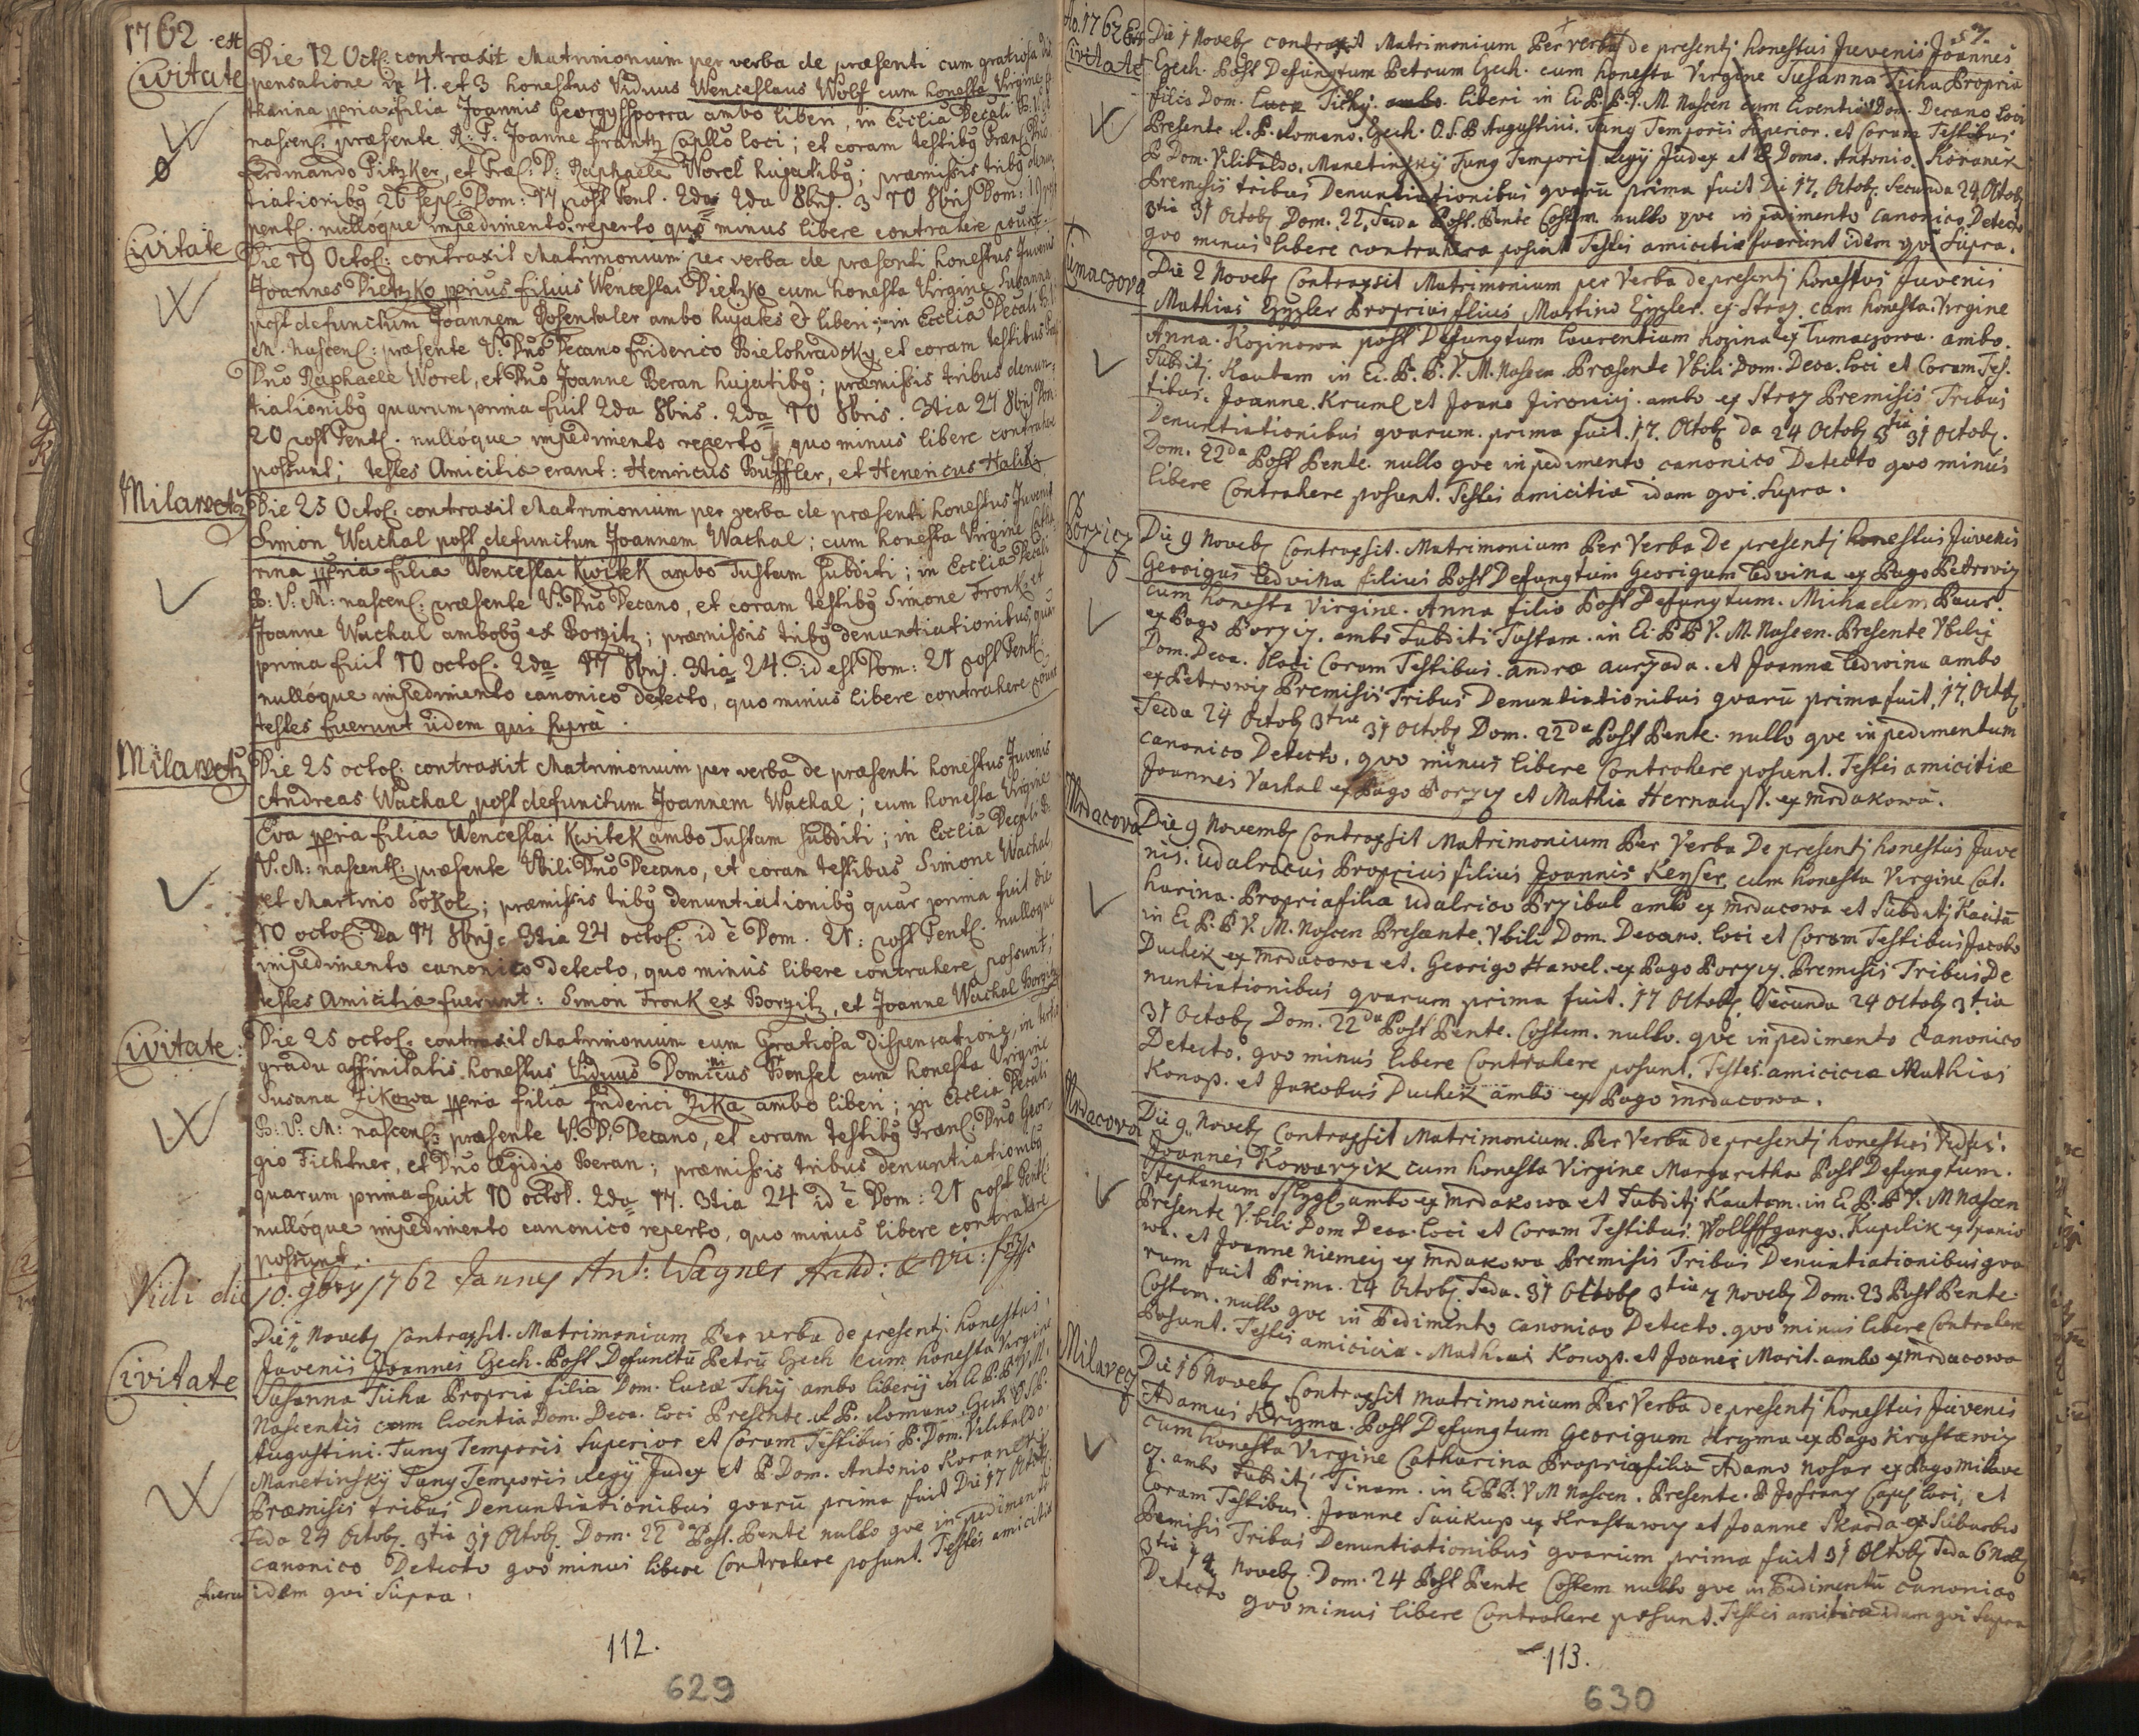 1762. est
Civitate
Die 12 Octo: contraxit Matrimonium per verba de præsenti cum gratiosa
pensatione in 4. et 3 honestus Viduus Wenceslaus Wolf cum honesta Virgine
tharina ppria filia Joannis Georgy Sporra ambo liberi, in Ecclia Decali
nascen: præsente R: P. Joanne Frantz Capllo loci; et coram testibg
Ferdinando Pitzker, et Præ: D: Raphaele Worel hujatibg; præmissis tribg
tiationibg 26 Sept: Dom: 17 post Pent. 2da 2da 8bris. 3 10 8bris Dom: 19
pent: nullóque impedimento reperto quo minus libere contrahere
Civitate
Die 19 Octo: contraxit Matrimonium per verba de præsenti honestus Juvenis
Joannes Dietzko pprius filius Wenceslai Dietzko cum honesta Virgine Susanna
post defunctum Joannem Rosentaler ambo hujates et liberi; in Ecclia Decali
M. Nascen: præsente V: Dno Decano Friderico Bielohradsky, et coram testibus
Dno Raphaele Worel, et Dno Joanne Beran hujatibg; præmissis tribus denun-
tiationibg quarum prima fuit 2da 8bris. 2da 10 8bris. 3tia 17 8bris Dom:
20 post Pent: nullóque impedimento reperto, quo minus libere contrahere
possunt; testes Amicitiæ erant: Henricus Buffler, et Henericus Halik
Milawetz
Die 25 Octo: contraxit Matrimonium per verba de præsenti honestus Juvenis
Simon Wachal post defunctum Joannem Wachal; cum honesta Virgine Catha
rina ppria filia Wenceslai Kwitek ambo Tustam subditi; in Ecclia Decali
B: V: M: nascen: præsente V: Dno Decano, et coram testibg Simone Fronk et
Joanne Wachal ambobg ex Borzitz; præmissis tribg denuntiationibus, qua
prima fuit 10 octo: 2da 17 8bris. 3tia 24. id est Dom: 21 post Pent:
nullóque impedimento canonico detecto, quo minus libere contrahere
testes fuerunt iidem qui supra.
Milawetz
Die 25 octo: contraxit Matrimonium per verba de præsenti honestus Juvenis
Andreas Wachal post defunctum Joannem Wachal; cum honesta Virgine
Eva ppria filia Wenceslai Kwitek ambo Tustam subditi; in Ecclia Decali B:
V: M: nascent: præsente Vbili Dno Decano, et coram testibus Simone Wachal,
et Martino Sokol; præmissis tribg denuntiationibg quar prima fuit die
10 octo: Da 17 8bris 3tia 24 octo: id è Dom. 21: post Pent: nullóque
impedimento canonico detecto, quo minus libere contrahere possunt;
testes Amicitiæ fuerunt: Simon Fronk ex Borzitz, et Joanne Wachal Borzitz
Civitate:
Die 25 octo: contraxit Matrimonium cum Gratiosa dispensatione, in tertio
gradu affinitatis honestus Viduus Dominicus Bensel cum honesta Virgine
Susana Zikowa ppria filia Friderici Zika ambo liberi; in Ecclia Decali
B: V: M: nascen: præsente V: D: Decano, et coram testibg Præn: Dno Geor-
gio Fichtner, et Dno Ægidio Beran; præmissis tribus denuntiationibg
quarum prima fuit 10 octo: 2da 17. 3tia 24 id è Dom: 21 post Pent:
nullóque impedimento canonico reperto, quo minus libere contrahere
possunt.
Vidi die 10. 9bris 1762 Jannes Ant: Wagner Archid: & Vic:
Civitate
Die 1 Noveb Contraxsit Matrimonium Per verba de presentj honestus
Juvenis Joannes Czech Post Defunctū Petrū Czech cum honesta Virgine
Susanna Ticha Propria filia Dom. Lucæ Tichÿ ambo liberÿ in E. P. B. V. M.
Nascentis cum licentia Dom. Deca. loci Presente R. P. Romano Czech O. S. P.
Augustini Tunz Temporis Superior et Coram Testibus P. Dom. Vilibaldo
Manetinskÿ Tunz Temporis Regÿ Judex et P. Dom. Antonio Koranek
Præmisis tribus Denuntiationibus qvarū prima fuit Die 17 Octob
Seda 24 Octob 3tia 31 Octob. Dom. 22da Post. Pente nullo qve in pedimento
canonico Detecto qvo minus libere Contrahere posunt. Testes amicitiæ
fueru idem qvi Supra.
112.
629
Ao. 1762 Ex
Civitate
57.
Die 1 Noveb contraxit Matrimonium Per verba de presentj honestus Juvenis Joannes
Czech. Post Defunctum Petrum Czech. cum honesta Virgine Susanna Ticha Propria
filia Dom. Lucæ Tichÿ. ambo. liberi in Ei. P. B. V. M Nascen cum licentia Dom. Decano loci
Presente R. P. Romano. Czech. O. S. P Augustini. Tunz Temporis Superior. et Coram Testibus
P Dom. Vilibaldo. Manetinskÿ Tunz Temporis Regÿ Judex et P Dom. Antonio. Koranek
Premisis tribus Denuntiationibus qvarū prima fuit Di 17. Octob. Secunda 24 Octob
3tia 31 Octob Dom. 22. Seda Post. Pente Costem nullo qve in pedimento canonico Detecto
qvo minus libere contrahere posunt Testes amicitiæ fuerunt idem qvi Supra.
Tumaczova
Die 2 Noveb Contraxsit Matrimonium per Verba de presentj honestus Juvenis
Mathias Eyzler Proprius filius Martino Eyzler. ex Stroz. cum honesta. Virgine
Anna. Kozinowa post Defungtum Laurentium Kozina ex Tumaczowa. ambo.
Subditj. Kautam in Ei. P. B. V. M. Nascen Præsente Vbili Dom. Deca. loci et Coram Tes.
tibus. Joanne. Kruml et Joane Jirowiij. ambo ex Stroz Premisis Tribus
Denuntiationibus qvarum. prima fuit. 17. Octob Da 24 Octob 3tia 31 Octob.
Dom. 22da Post Pente. nullo qve in pedimento canonico Detecto qvo minus
libere Contrahere posunt. Testes amicitiæ idam qvi Supra.
Porzicz
Die 9 Noveb Contraxsit. Matrimonium Per Verba De presentj honestus Juvenis
Georigus Ledvina filius Post Defungtum Georigum Ledvina ex Pago Petroviz
cum honesta Virgine. Anna filia Post Defungtum. Michaelem Paur.
ex Pago Porziz. ambo Subditi Tustam. in Ei. P B V. M. Nascen. Presente Vbilij
Dom. Deca. Vloci Coram Testibus. andræ aurzada. et Joanna Ledwina ambo
ex Petrowiz Premisis Tribus Denuntiationibus qvarū prima fuit. 17. Octob.
Secda 24 Octob 3tia 31 Octob Dom. 22da Post Pente. nullo qve in pedimentum
canonico Detecto. qvo minus libere Contrahere posunt. Testes amicitiæ
Joannes Vachal ex Pago Porzyz et Mathia Hernaust. ex Mrdakowa.
Mrdacova
Die 9 Novemb Contraxsit Matrimonium Per Verba De presentj honestus Juve
nis. Udalracus Proprius filius Joannis Keyser cum honesta Virgine Cat.
harina. Propria filia Udalrico Przibal ambo ex Mrdacowa et Subditj Kautā
in Ei. P. B V. M. Noscen Presænte. Vbili Dom. Decano. loci et Coram Testibus Jacobo
Duchek ex Mrdacowa et. Georigo Hawel. ex Pago Porzyz. Premisis Tribus De
nuntiationibus qvarum prima fuit. 17 Octob. Secunda 24 Octob 3tia
31 Octob Dom. 22da Post Pente. Costem. nullo. qve in pedimento Canonico
Detecto. qvo minus libere Contrahere posunt. Testes. amiciciæ Mathias
Konop. et Jakobus Duchek ambo ex Pago Mrdacowa.
Mrdacova
Die 9. Noveb Contraxsit Matrimonium. Per Verba de presentj honestus
Joannes Kowarzik cum honesta Virgine Margaritha Post Defungtum.
Stephanum ambo ex Mrdakowa et Subditj Kautam. in Ei P. B V. M Nascen
Presente V. bili Dom Deca. loci et Coram Testibus. Wollffgango. Kuplik ex Spanio
wa. et Joanne Niemeiz ex Mrdakowa Premisis Tribus Denuntiationibus qva
rum fuit Prima. 24 Octob. Seda. 31 Octob 3tia 7 Noveb Dom. 23 Post Pente.
Costem. nullo qve in Pedimento canonico Detecto. qvo minus libere Contrahere
Posunt. Testes amiciciæ. Mathias Konop. et Joanes Marit. ambo ex Mrdacowa
Milavecz
Die 16 Noveb Contraxsit Matrimonium Per Verba de presentj honestus Juvenis
Adamus Kryzma. Post Defungtum Georigum Kryzma ex Pago Krastawiz
cum honesta Virgine Catharina Propria filia Adamo Nosar ex Pago Milave
cz. ambo Subditj Tinam. in Ei P. B. V M Nascen. Presente. P Jos Franz Capel loci, et
Coram Testibus. Joanne Saukup ex Krastawiz et Joanne Skarda ex Suburbio
Premisis Tribus Denuntiationibus qvarum prima fuit 31 Octob Seda 6 Noveb
3tia 14 Noveb. Dom. 24 Post Pente Costem nullo qve in Pedimentū canonico
Detecto qvo minus libere Contrahere posunt. Testes amiticiæ idam qvi Supra
113.
630